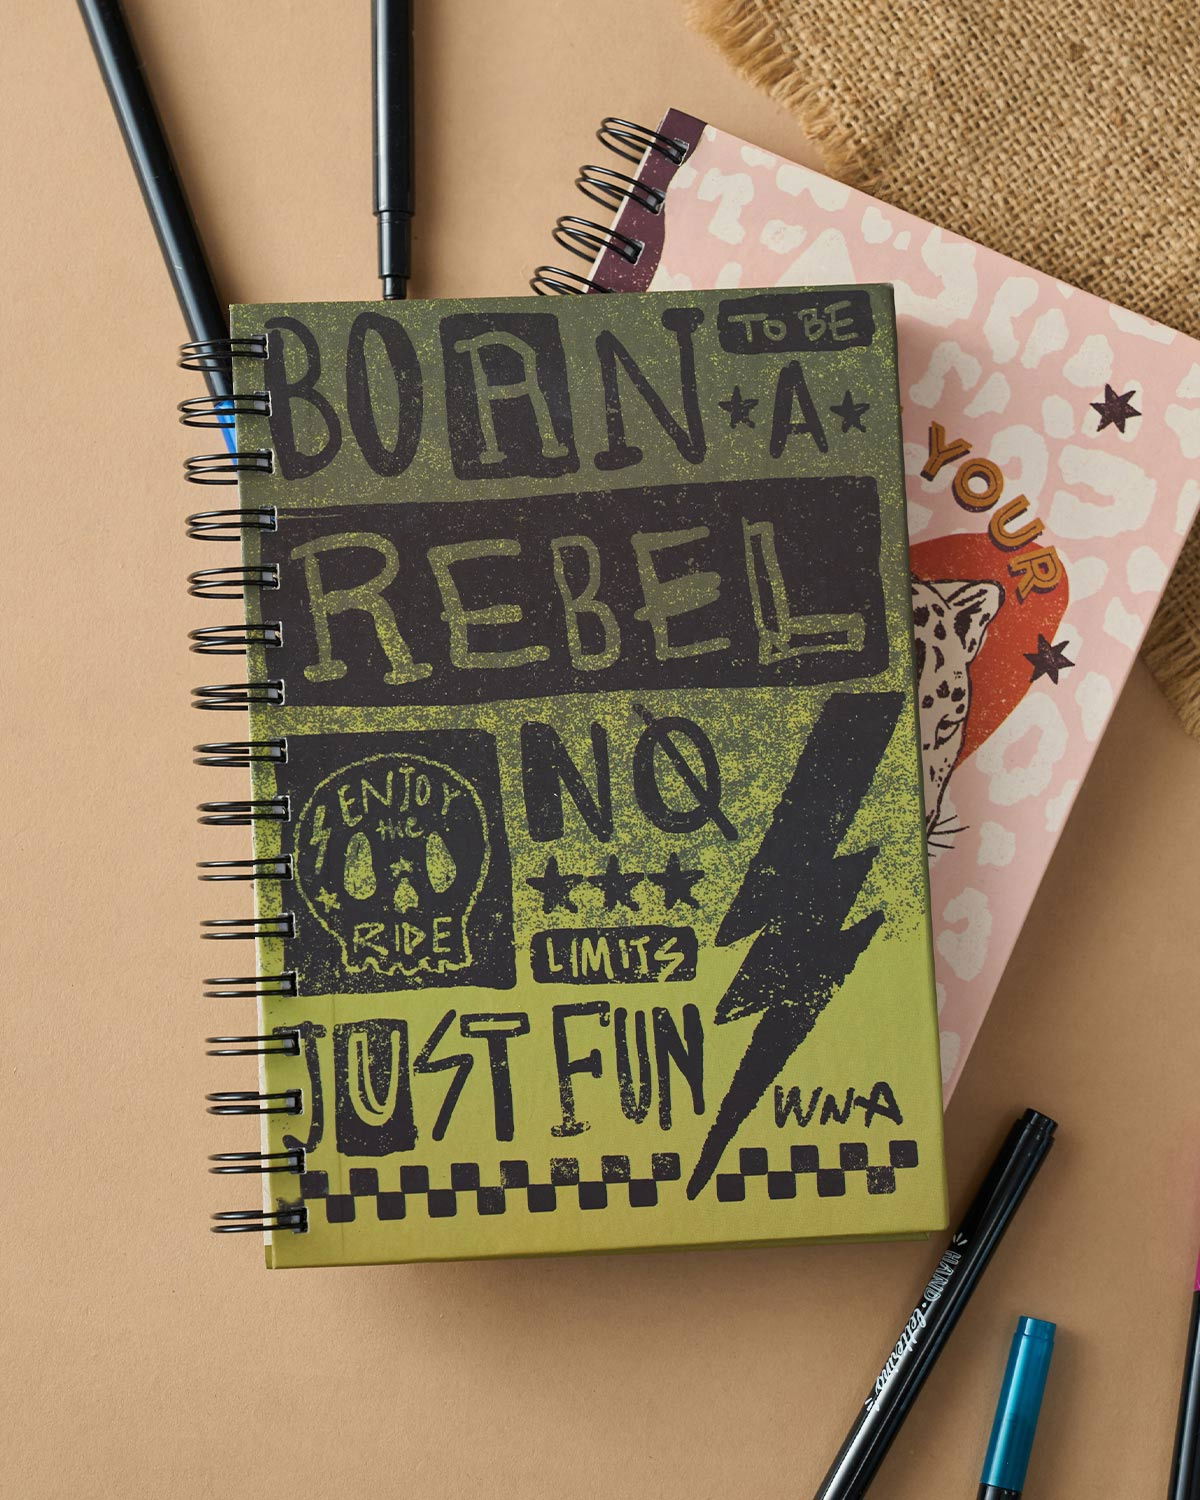 BORN TO BE
A
REBEL
ENJOY
the
RIDE
NO
LIMITS
JUST FUN
WNA
YOUR
HAND · Lettering